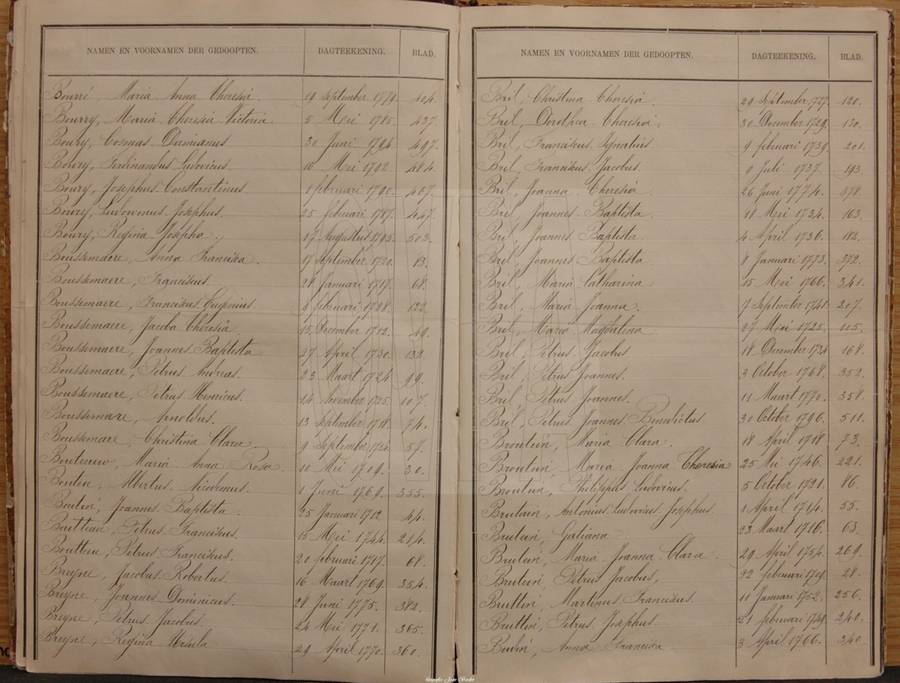 NAMEN EN VOORNAMEN DER GEDOOPTEN. DAGTEEKENING. BLAD.
Bourré, Maria Anna Theresia 19 September 1770. 404.
Bourry, Maria Theresia Victoria 5 Mei 1785. 437.
Boury, Cosmas Damianus 30 Juni 1796 497.
Boury, Ferdinandus Ludovicus. 10 Mei 1792 484.
Boury, Josephus Constantinus 1 februari 1790. 467.
Boury, Ludovicus Josephus. 25 februari 1787. 447.
Boury, Regina Josepha. 17 Augustus 1793. 503.
Boussemaere, Anna Francisca. 17 September 1720. 83.
Boussemaere, Franciscus. 28 Januari 1717. 68.
Boussemaere, Franciscus Eugenius. 6 februari 1728. 122.
Boussemaere, Jacoba Theresia 12 December 1712. 49.
Boussemaere, Joannes Baptista 27 April 1730. 133.
Boussemaere, Petrus Andreas. 23 Maart 1724 99.
Boussemaere, Petrus Henricus. 14 November 1725. 107.
Boussemare, Arnoldus. 13 September 1718. 74.
Boussemare, Christina Clara. 9 September 57.
Maria Anna Rosa. 11 Mei 1709. 30.
Boutin, Albertus 1 Juni 1769. 355.
Boutin, Joannes Baptista. 25 Januari 1712. 44.
Boutteau, Petrus Franciscus. 15 Mei 1744. 214.
Bouttin, Petrus Franciscus. 20 februari 1717. 68.
Breyne, Jacobus Robertus. 16 Maart 1769. 354.
Breyne, Joannes Dominicus. 28 Juni 1775. 382.
Breyne, Petrus Jacobus. 24 Mei 1771. 365.
Breyne, Regina Ursula 29 April 1770. 360.
NAMEN EN VOORNAMEN DER GEDOOPTEN. DAGTEEKENING. BLAD.
Bril, Christina Theresia. 29 September 1727. 120.
Bril, Dorothea Theresia. 30 December 1729. 130.
Bril, Franciscus Ignatius 9 februari 1739. 201.
Bril, Franciscus Jacobus. 9 Juli 1737. 193.
Bril, Joanna Theresia 26 Juni 1774. 378.
Bril, Joannes Baptista. 18 Mei 1734. 163.
Bril, Joannes Baptista 4 April 1736. 182.
Bril, Joannes Baptista 8 Januari 1773. 372.
Bril, Maria Catharina 15 Mei 1766. 341.
Bril, Maria Joanna. 7 September 1741. 207.
Bril, Maria Magdalena 17 Mei 1725. 115.
Bril, Petrus Jacobus 18 December 1734 168.
Bril, Petrus Joannes. 3 October 1768. 352.
Bril, Petrus Joannes. 11 Maart 1770. 358.
Bril, Petrus Joannes Benedictus 30 October 1796. 511.
Broutin, Maria Clara. 18 April 1718 73.
Broutin, Maria Joanna Theresia 25 Mei 1746. 221.
Broutin, Philippus Ludovicus. 5 October 1721. 86.
Brutin, Antonius Ludovicus Josephus 1 April 1714. 55.
Brutin, 23 Maart 1716. 63.
Brutin, Maria Joanna Clara. 29 April 1754. 269.
Brutin, Petrus Jacobus, 22 februari 1709. 28.
Bruttin, Martinus Franciscus. 11 Januari 1752. 256.
Bruttin, Petrus Josephus. 21 februari 240.
Anna Francisca 3 April 1766. 340